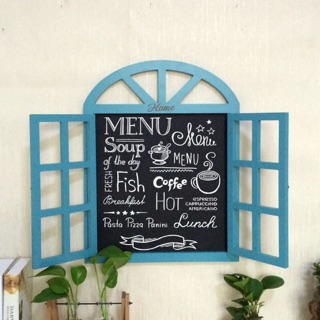 Home
MENU
Soup
of the day
Menu
MENU
FRESH
Fish
Coffee
Breakfast
HOT
ESPRESSO
CAPPUCCINO
AFRICANO
Pasta Pizza Panini
Lunch